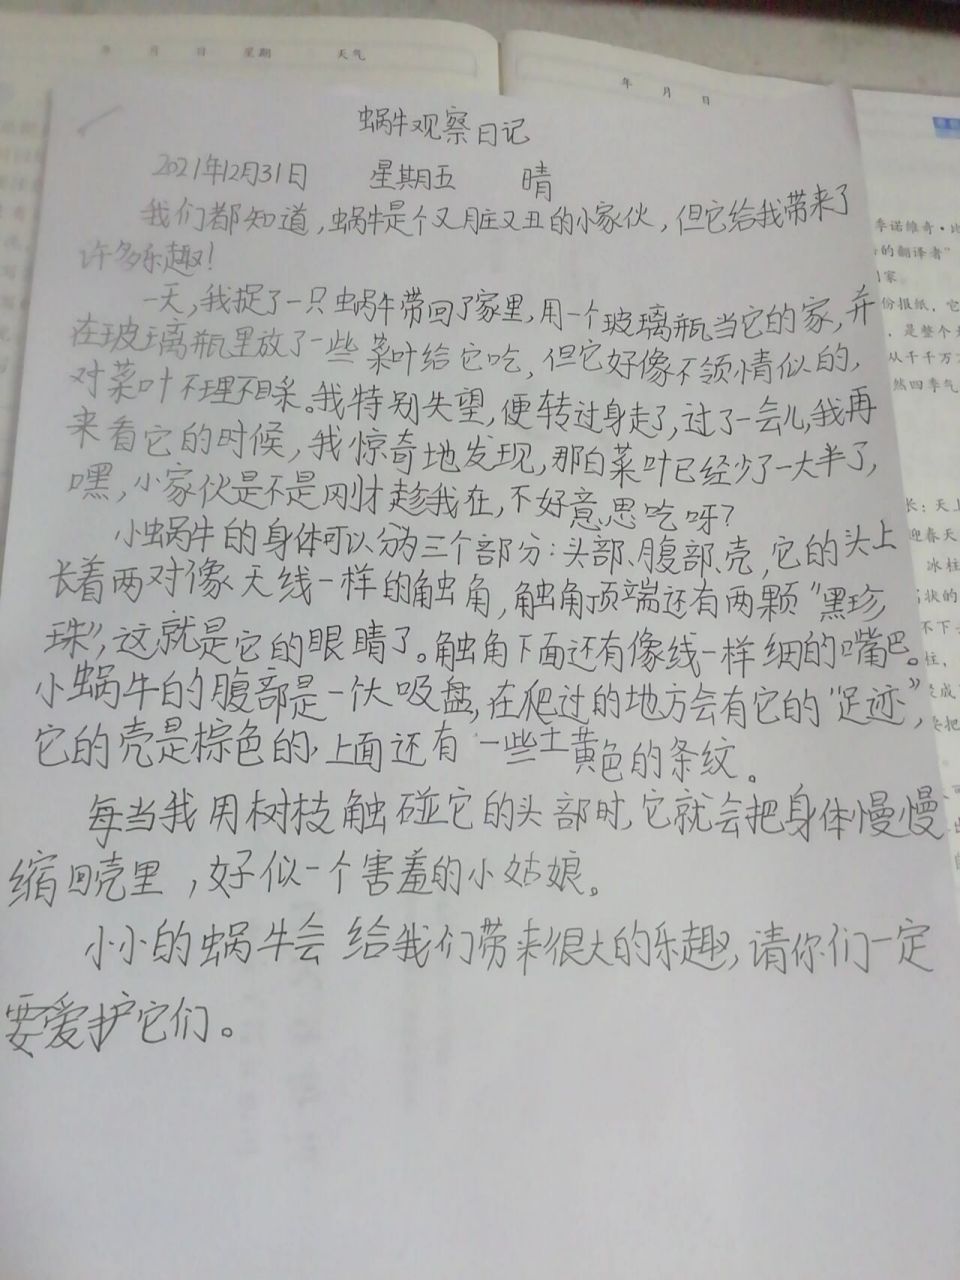 年 月 日 星期 天气
年 月 日
蜗牛观察日记
2021年12月31日 星期五 晴
我们都知道,蜗牛是个又脏又丑的小家伙,但它给我带来了
许多乐趣!
一天,我捉了一只蜗牛带回了家里,用一个玻璃瓶当它的家,并
在玻璃瓶里放了一些菜叶给它吃,但它好像不领情似的,
对菜叶不理不睬。我特别失望,便转过身走了,过了一会儿,我再
来看它的时候,我惊奇地发现,那白菜叶已经少了一大半了,
嘿,小家伙是不是刚才趁我在,不好意思吃呀?
小蜗牛的身体可以分为三个部分:头部、腹部、壳,它的头上
长着两对像天线一样的触角,触角顶端还有两颗“黑珍
珠”,这就是它的眼睛了。触角下面还有像线一样细的嘴巴。
小蜗牛的腹部是一个大吸盘,在爬过的地方会有它的“足迹”,
它的壳是棕色的,上面还有一些土黄色的条纹。
每当我用树枝触碰它的头部时,它就会把身体慢慢
缩回壳里,好似一个害羞的小姑娘。
小小的蜗牛会给我们带来很大的乐趣,请你们一定
要爱护它们。
季诺维奇·
的翻译者”
家。
份报纸,它
,是整个
从千千万
然四季气
长:天上
迎春天
冰柱
状的
不下
柱,
成
要把